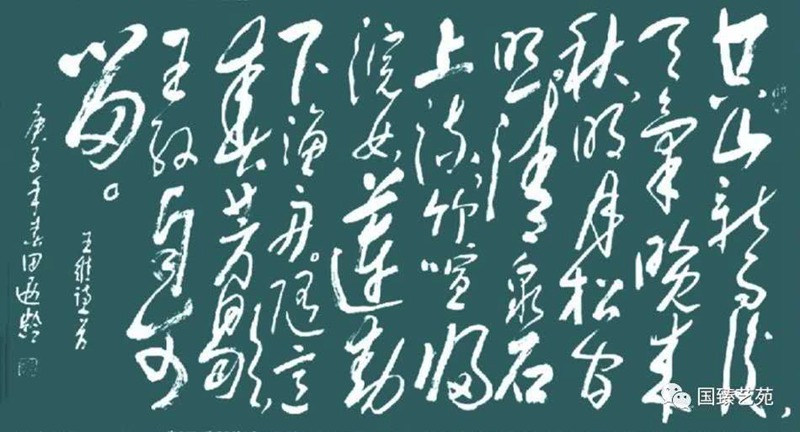 空山新雨後，
天氣晚来
秋，明月松间
照，清泉石
上流，竹喧归
浣女，莲動
下渔舟。随意
春芳歇，
王孙自可
留。
王維诗一首
庚子年田龄
国臻艺苑